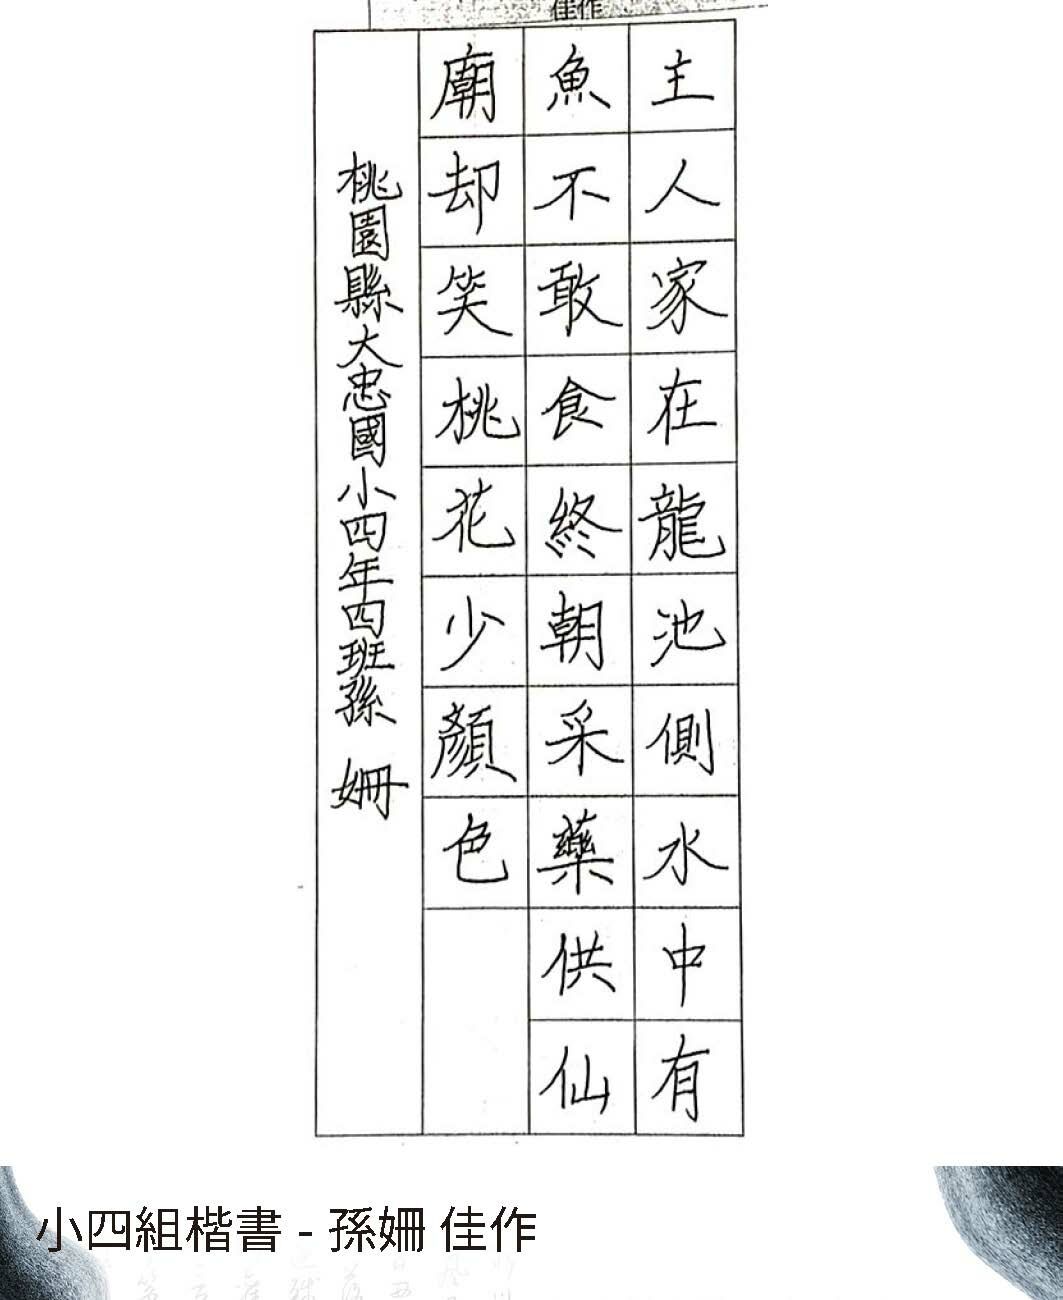 佳作
主人家在龍池側水中有
魚不敢食終朝采藥供仙
廟却笑桃花少顏色
桃園縣大忠國小四年四班孫 姍
小四組楷書 - 孫姍 佳作